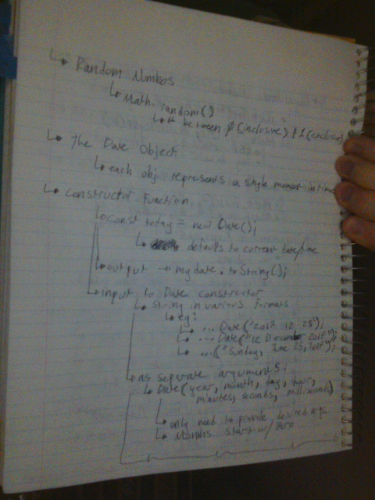 Random Numbers
Math.random()
# between 0 (inclusive) & 1 (exclusive)
The Date Object
each obj represents a single moment in time
Constructor Function
const today = new Date();
defaults to current time/time
output → mydate.toString();
input to Date constructor
string in various formats
eg:
... Date("
... Date("
...("Sunday, June
as separate arguments:
Date(year, month, day, hour,
minutes, seconds, milliseconds)
only need to provide
Months start w/ zero